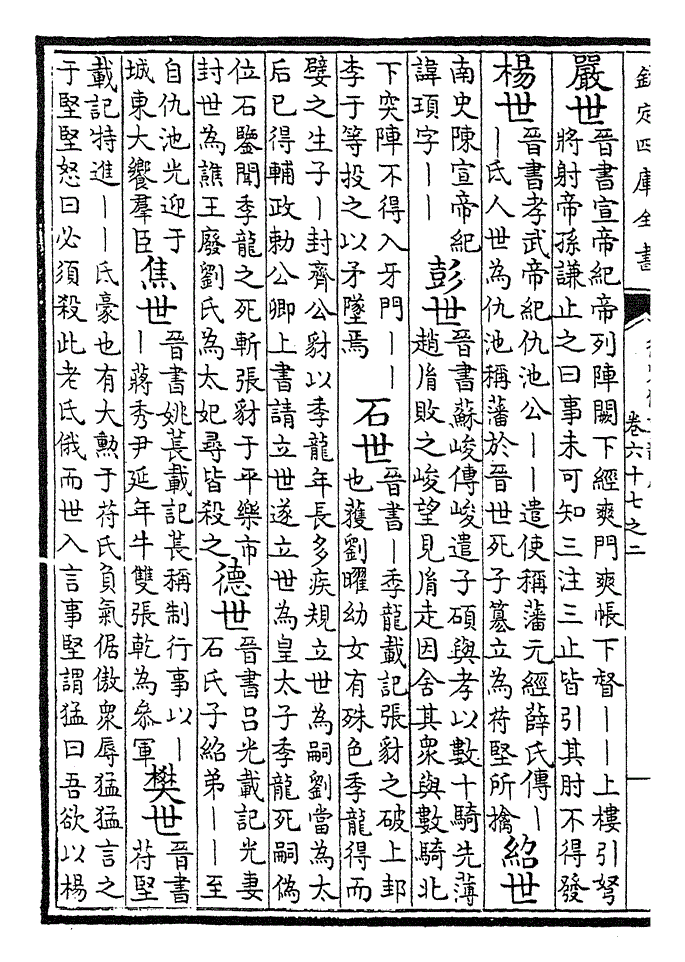 欽定四庫全書
卷六十七之二
嚴世
晉書宣帝紀帝列陣闕下經爽門爽帳下督丨丨上樓引弩
將射帝孫謙止之曰事未可知三注三止皆引其肘不得發
楊世
晉書孝武帝紀仇池公丨丨遣使稱藩元經薛氏傳丨
丨氐人世為仇池稱藩於晉世死子篡立為苻堅所擒
紹世
南史陳宣帝紀
諱頊字丨丨
彭世
晉書蘇峻傳峻遣子碩與孝以數十騎先薄
趙胤敗之峻望見胤走因舍其衆與數騎北
下突陣不得入牙門丨丨
李于等投之以矛墜焉
石世
晉書丨季龍載記張豺之破上邽
也獲劉曜幼女有殊色季龍得而
嬖之生子丨封齊公豺以季龍年長多疾規立世為嗣劉當為太
后已得輔政勅公卿上書請立世遂立世為皇太子季龍死嗣偽
位石鑒聞季龍之死斬張豺于平樂市
封世為譙王廢劉氏為太妃尋皆殺之
德世
晉書呂光載記光妻
石氏子紹弟丨丨至
自仇池光迎于
城東大饗羣臣
焦世
晉書姚萇載記萇稱制行事以丨
丨蔣秀尹延年牛雙張乾為叅軍
樊世
晉書
苻堅
載記特進丨丨氐豪也有大勲于苻氏負氣倨傲衆辱猛猛言之
于堅堅怒曰必須殺此老氐俄而世入言事堅謂猛曰吾欲以楊